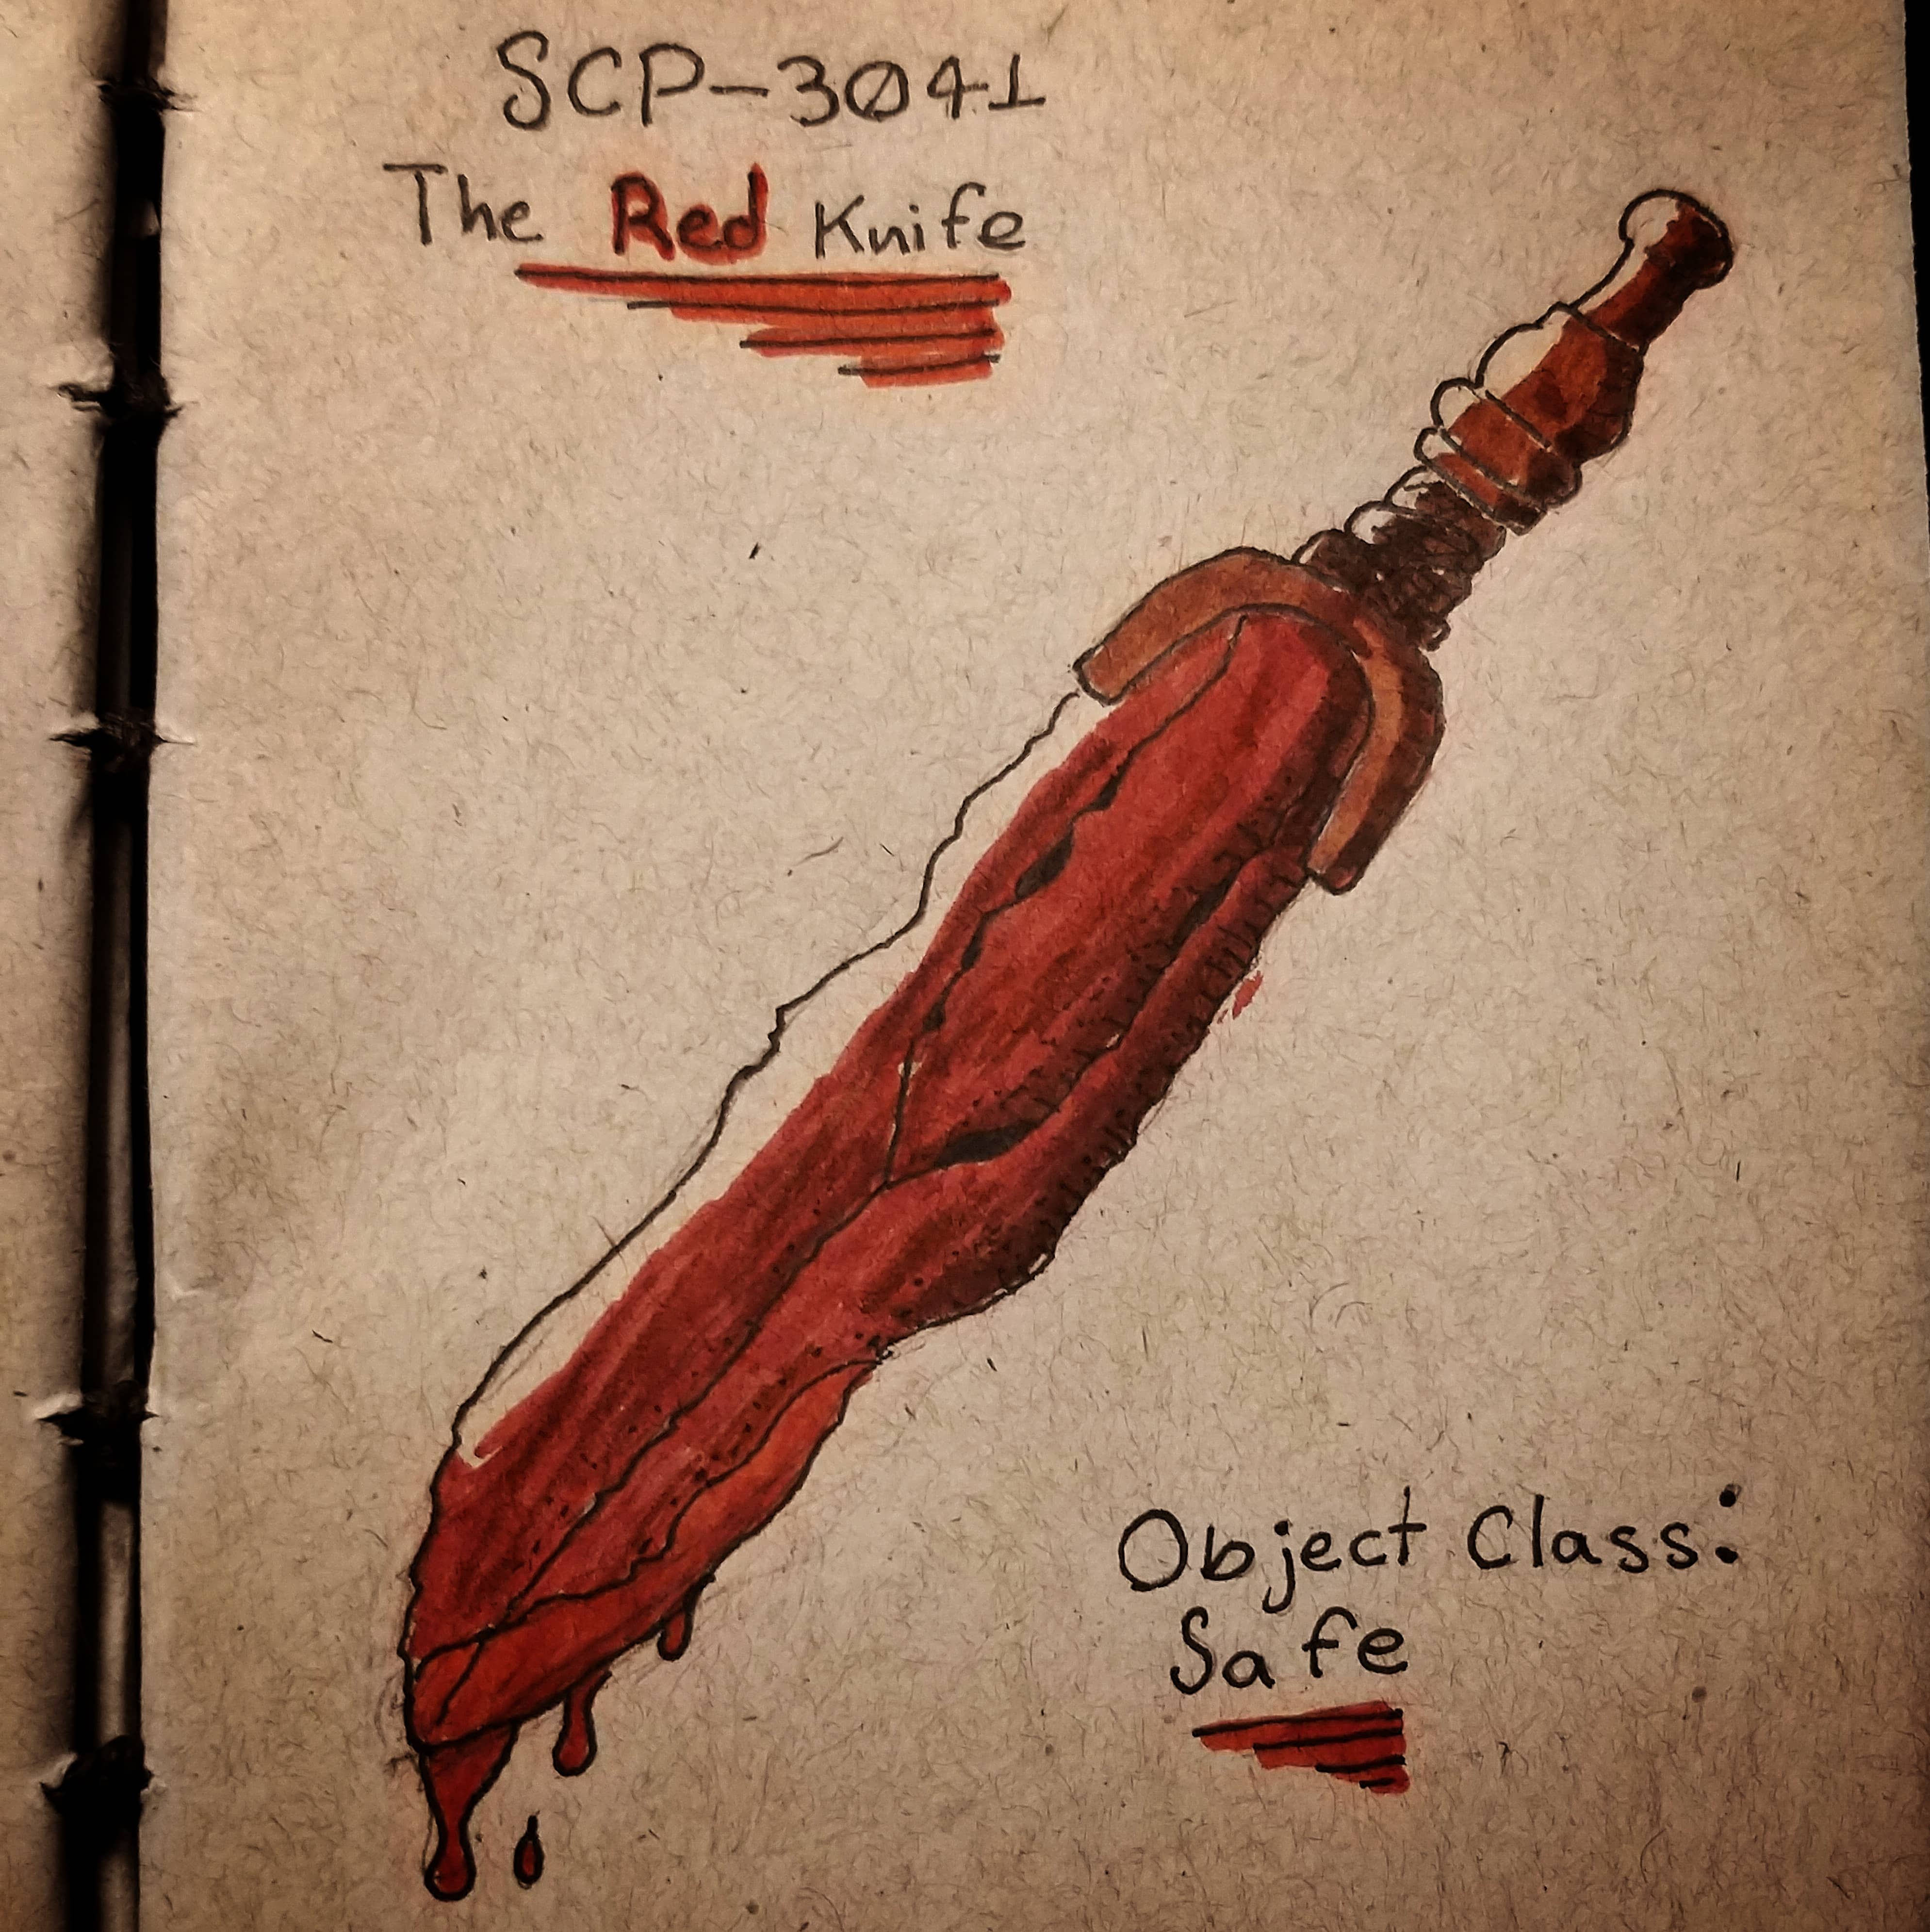 SCP-3041
The Red Knife
Object Class:
Safe